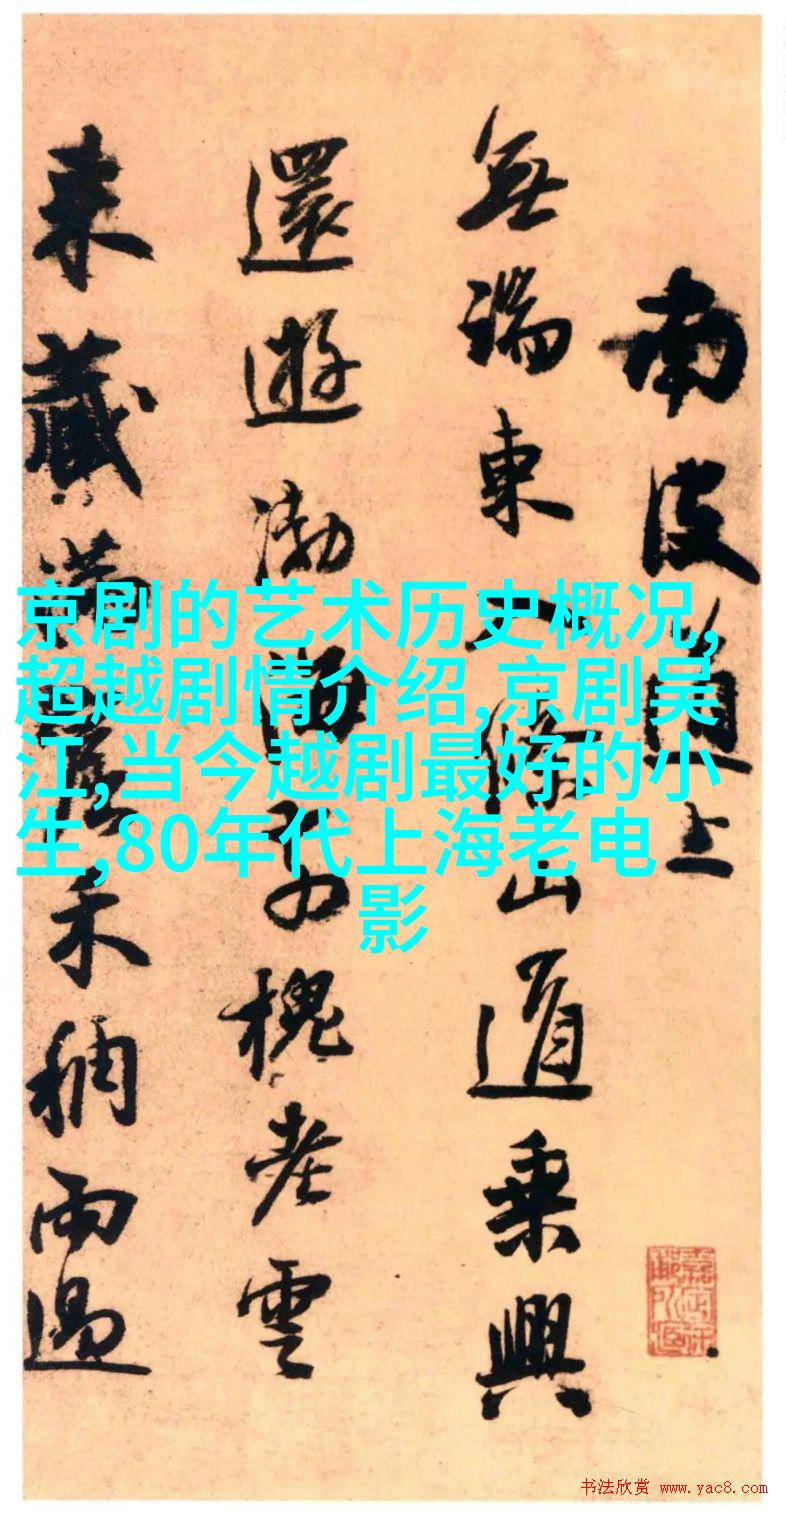 南皮道上
無端東條山道乘興
還遊渤海槐老雲
來藏滿禾稠雨過
京剧的艺术历史概况,
超越剧情介绍,京剧吴
江,当今越剧最好的小
生,80年代上海老电
影
书法欣赏 www.yac8.com